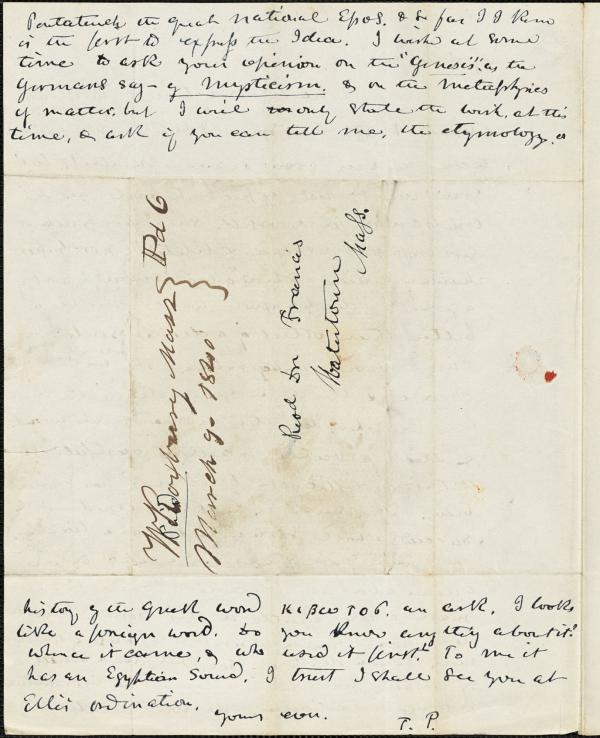 Pentateuch the great National Epos. & so far I I know
is the first to express the Idea. I wish at some
time to ask your opinion on the "Genesis", as the
Germans say — of Mysticism. & on the Metaphysics
of matter, but I will only state the wish, at this
time, & ask if you can tell me, the etymology, or
W Roxbury Mass } Pd 6
March 9. 1840 }
Paid
Revd Dr Francis
Watertown
Mass.
history of the Greek word κιβωτος. an ark. I looks
like a foreign word. Do you know any thing about it?
whence it came, & who used it first? To me it
has an Egyptian Sound. I trust I shall see you at
Ellis' ordination.
yours ever.
T. P.